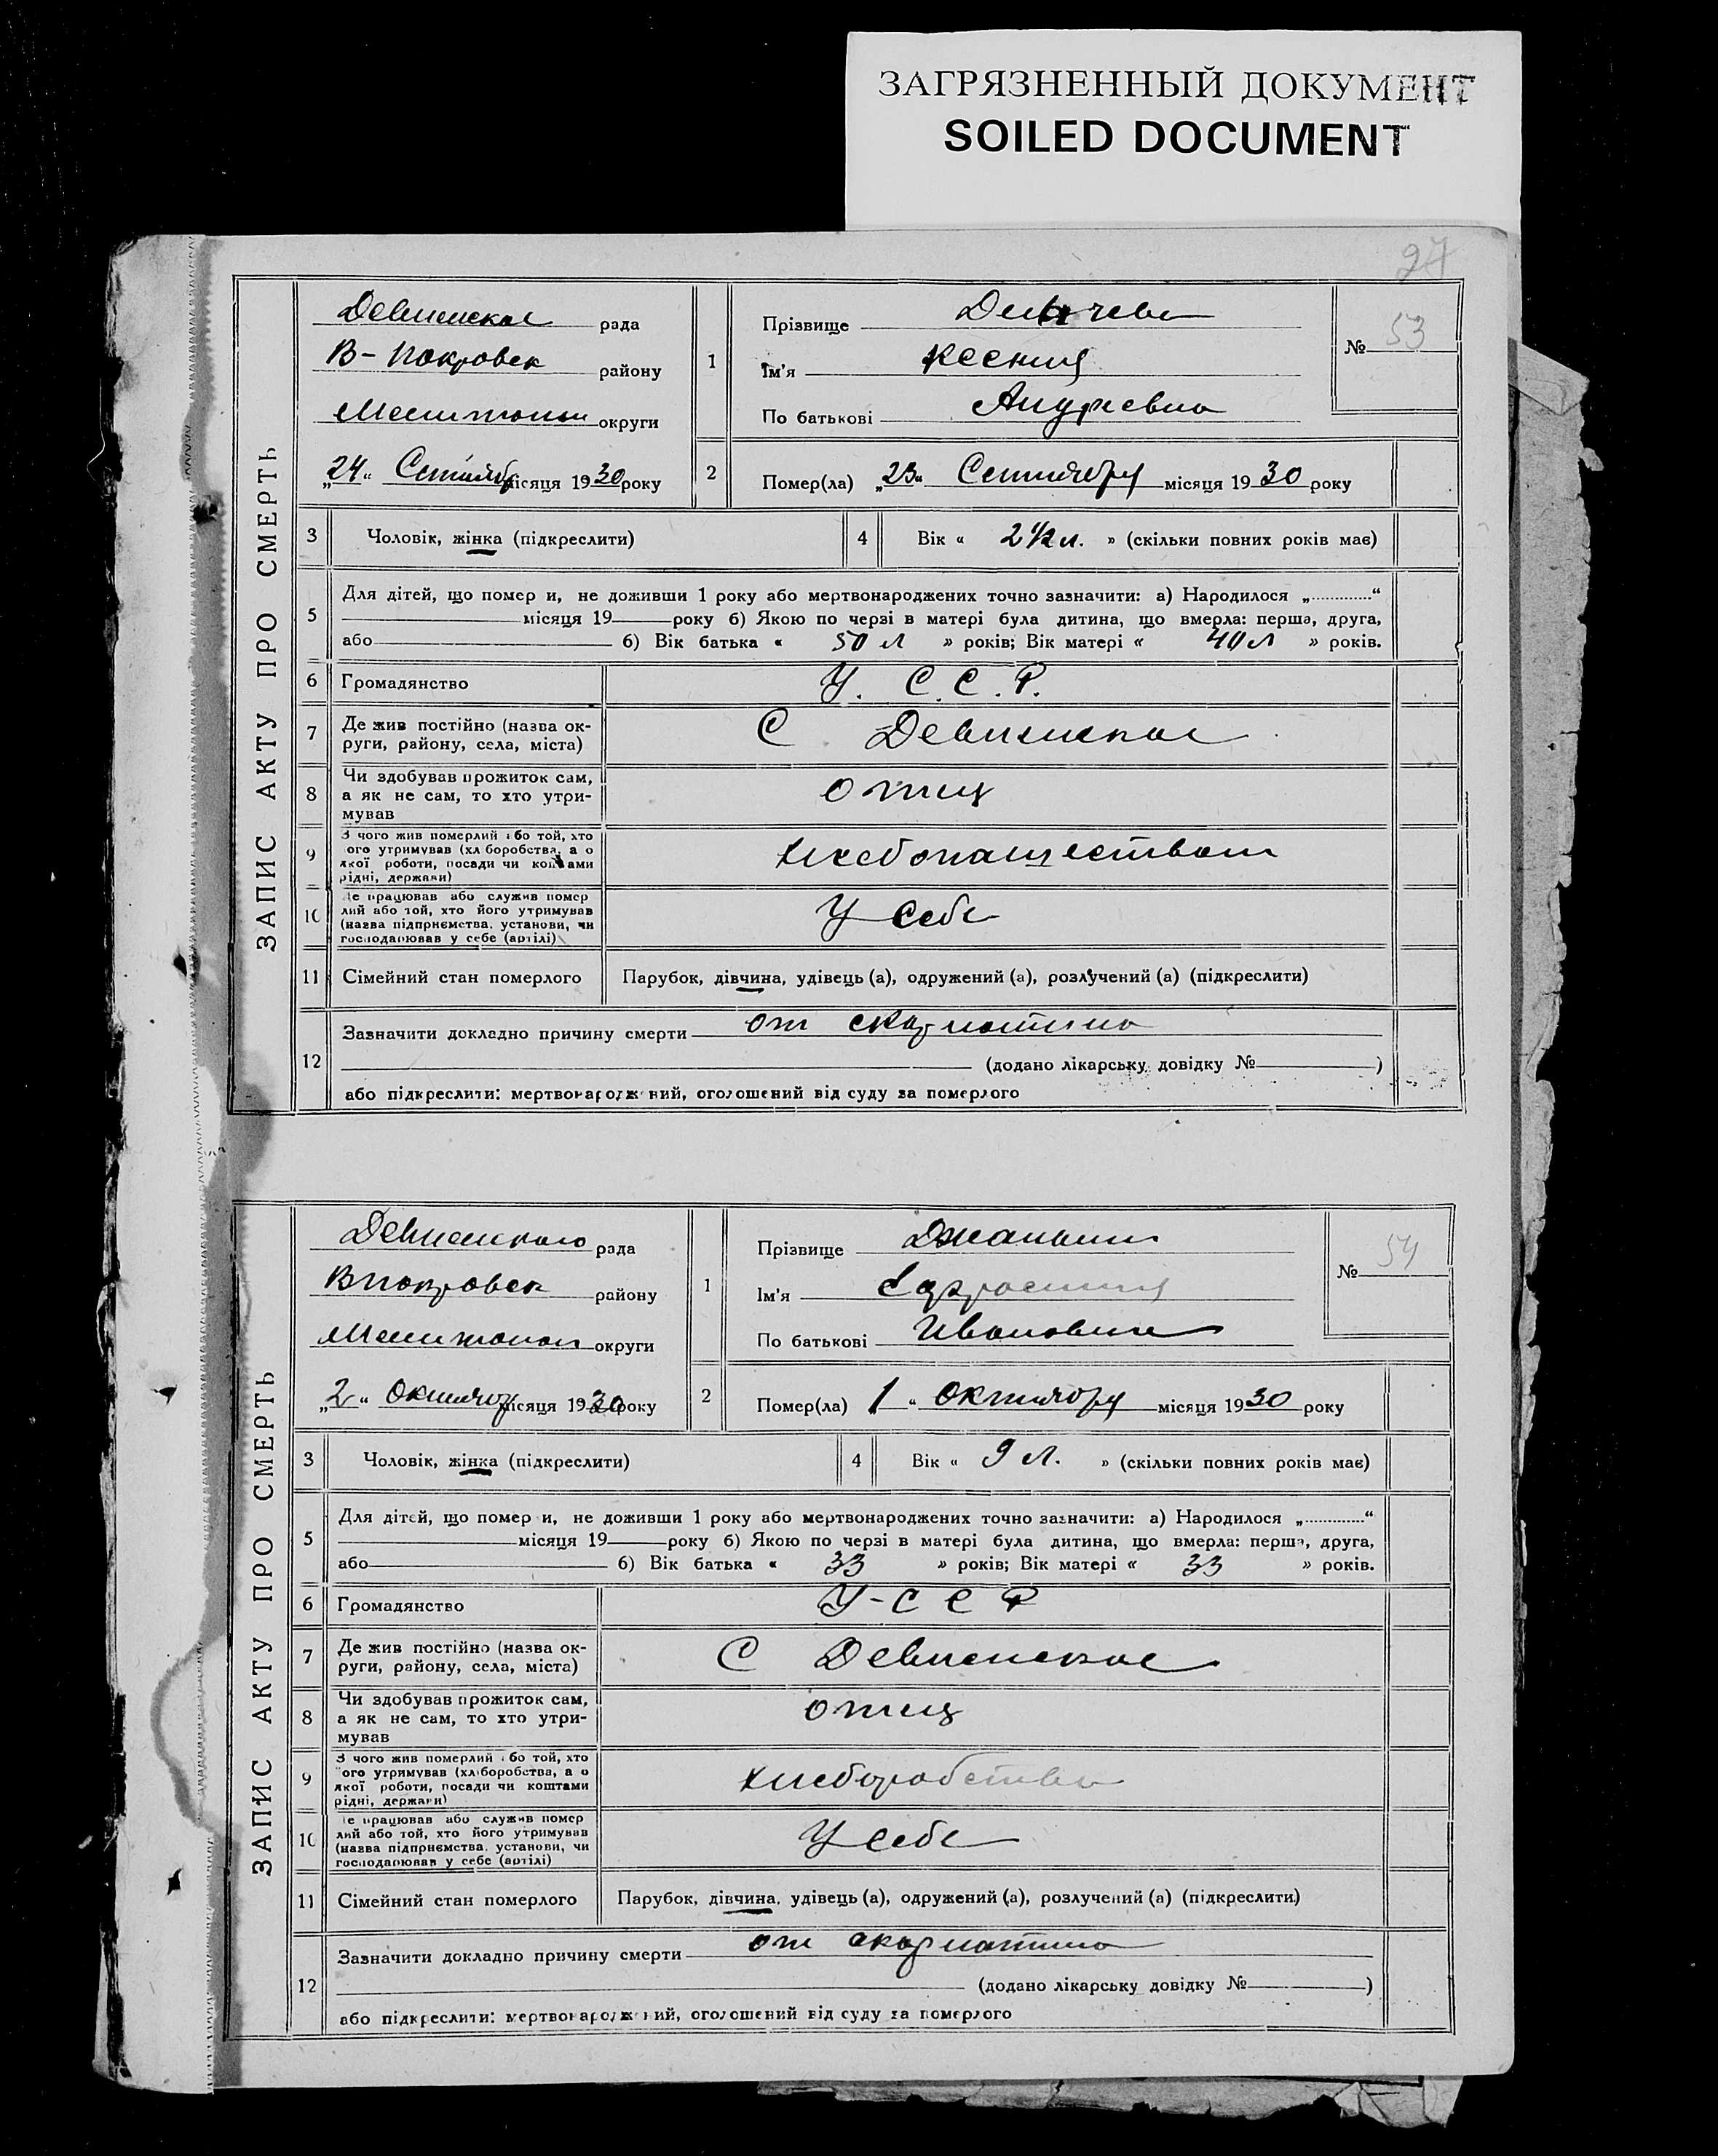 ЗАГРЯЗНЕННЫЙ ДОКУМЕНТ
SOILED DOCUMENT
27
ЗАПИС АКТУ ПРО СМЕРТЬ
Девненское рада
В-Покровск району
Мелитопол округи
„24“ Сентября місяця 1930 року
1
Прізвище
Ім'я Ксения
По батькові Андреевна
№ 53
2
Помер(ла) „23“ Сентября місяця 1930 року
3 Чоловік, жінка (підкреслити)
4 Вік « 2½ л. » (скільки повних років має)
5 Для дітей, що помер и, не доживши 1 року або мертвонароджених точно зазначити: а) Народилося „............“
місяця 19 року б) Якою по черзі в матері була дитина, що вмерла: перша, друга,
або б) Вік батька « 50 л » років; Вік матері « 40 л » років.
6 Громадянство У. С. С. Р.
7 Де жив постійно (назва ок-
руги, району, села, міста)
С Девненское
8 Чи здобував прожиток сам,
а як не сам, то хто утри-
мував
отец
9 З чого жив померлий або той, хто
його утримував (хліборобства, а о
якої роботи, посади чи коштами
рідні, держави)
Хлебопашеством
10 Де працював або служив помер
лий або той, хто його утримував
(назва підприємства, установи, чи
господарював у себе (артілі)
У себе
11 Сімейний стан померлого Парубок, дівчина, удівець (а), одружений (а), розлучений (а) (підкреслити)
12 Зазначити докладно причину смерти от скарлатина
(додано лікарську довідку № )
або підкреслити: мертвонароджений, оголошений від суду за померлого
ЗАПИС АКТУ ПРО СМЕРТЬ
Девненского рада
Впокровск району
Мелитопол округи
„2“ Октября місяця 1930 року
1
Прізвище
Ім'я Ефросиния
По батькові Ивановна
№ 54
2
Помер(ла) 1 “ Октября місяця 1930 року
3 Чоловік, жінка (підкреслити)
4 Вік « 9 л. » (скільки повних років має)
5 Для дітей, що помер и, не доживши 1 року або мертвонароджених точно зазначити: а) Народилося „............“
місяця 19 року б) Якою по черзі в матері була дитина, що вмерла: перша, друга,
або б) Вік батька « 33 » років; Вік матері « 33 » років.
6 Громадянство У-ССР
7 Де жив постійно (назва ок-
руги, району, села, міста)
С Девненское
8 Чи здобував прожиток сам,
а як не сам, то хто утри-
мував
отец
9 З чого жив померлий або той, хто
його утримував (хліборобства, а о
якої роботи, посади чи коштами
рідні, держави)
Хлеборобство
10 Де працював або служив помер
лий або той, хто його утримував
(назва підприємства, установи, чи
господарював у себе (артілі)
У себе
11 Сімейний стан померлого Парубок, дівчина, удівець (а), одружений (а), розлучений (а) (підкреслити)
12 Зазначити докладно причину смерти от скарлатина
(додано лікарську довідку № )
або підкреслити: мертвонароджений, оголошений від суду за померлого